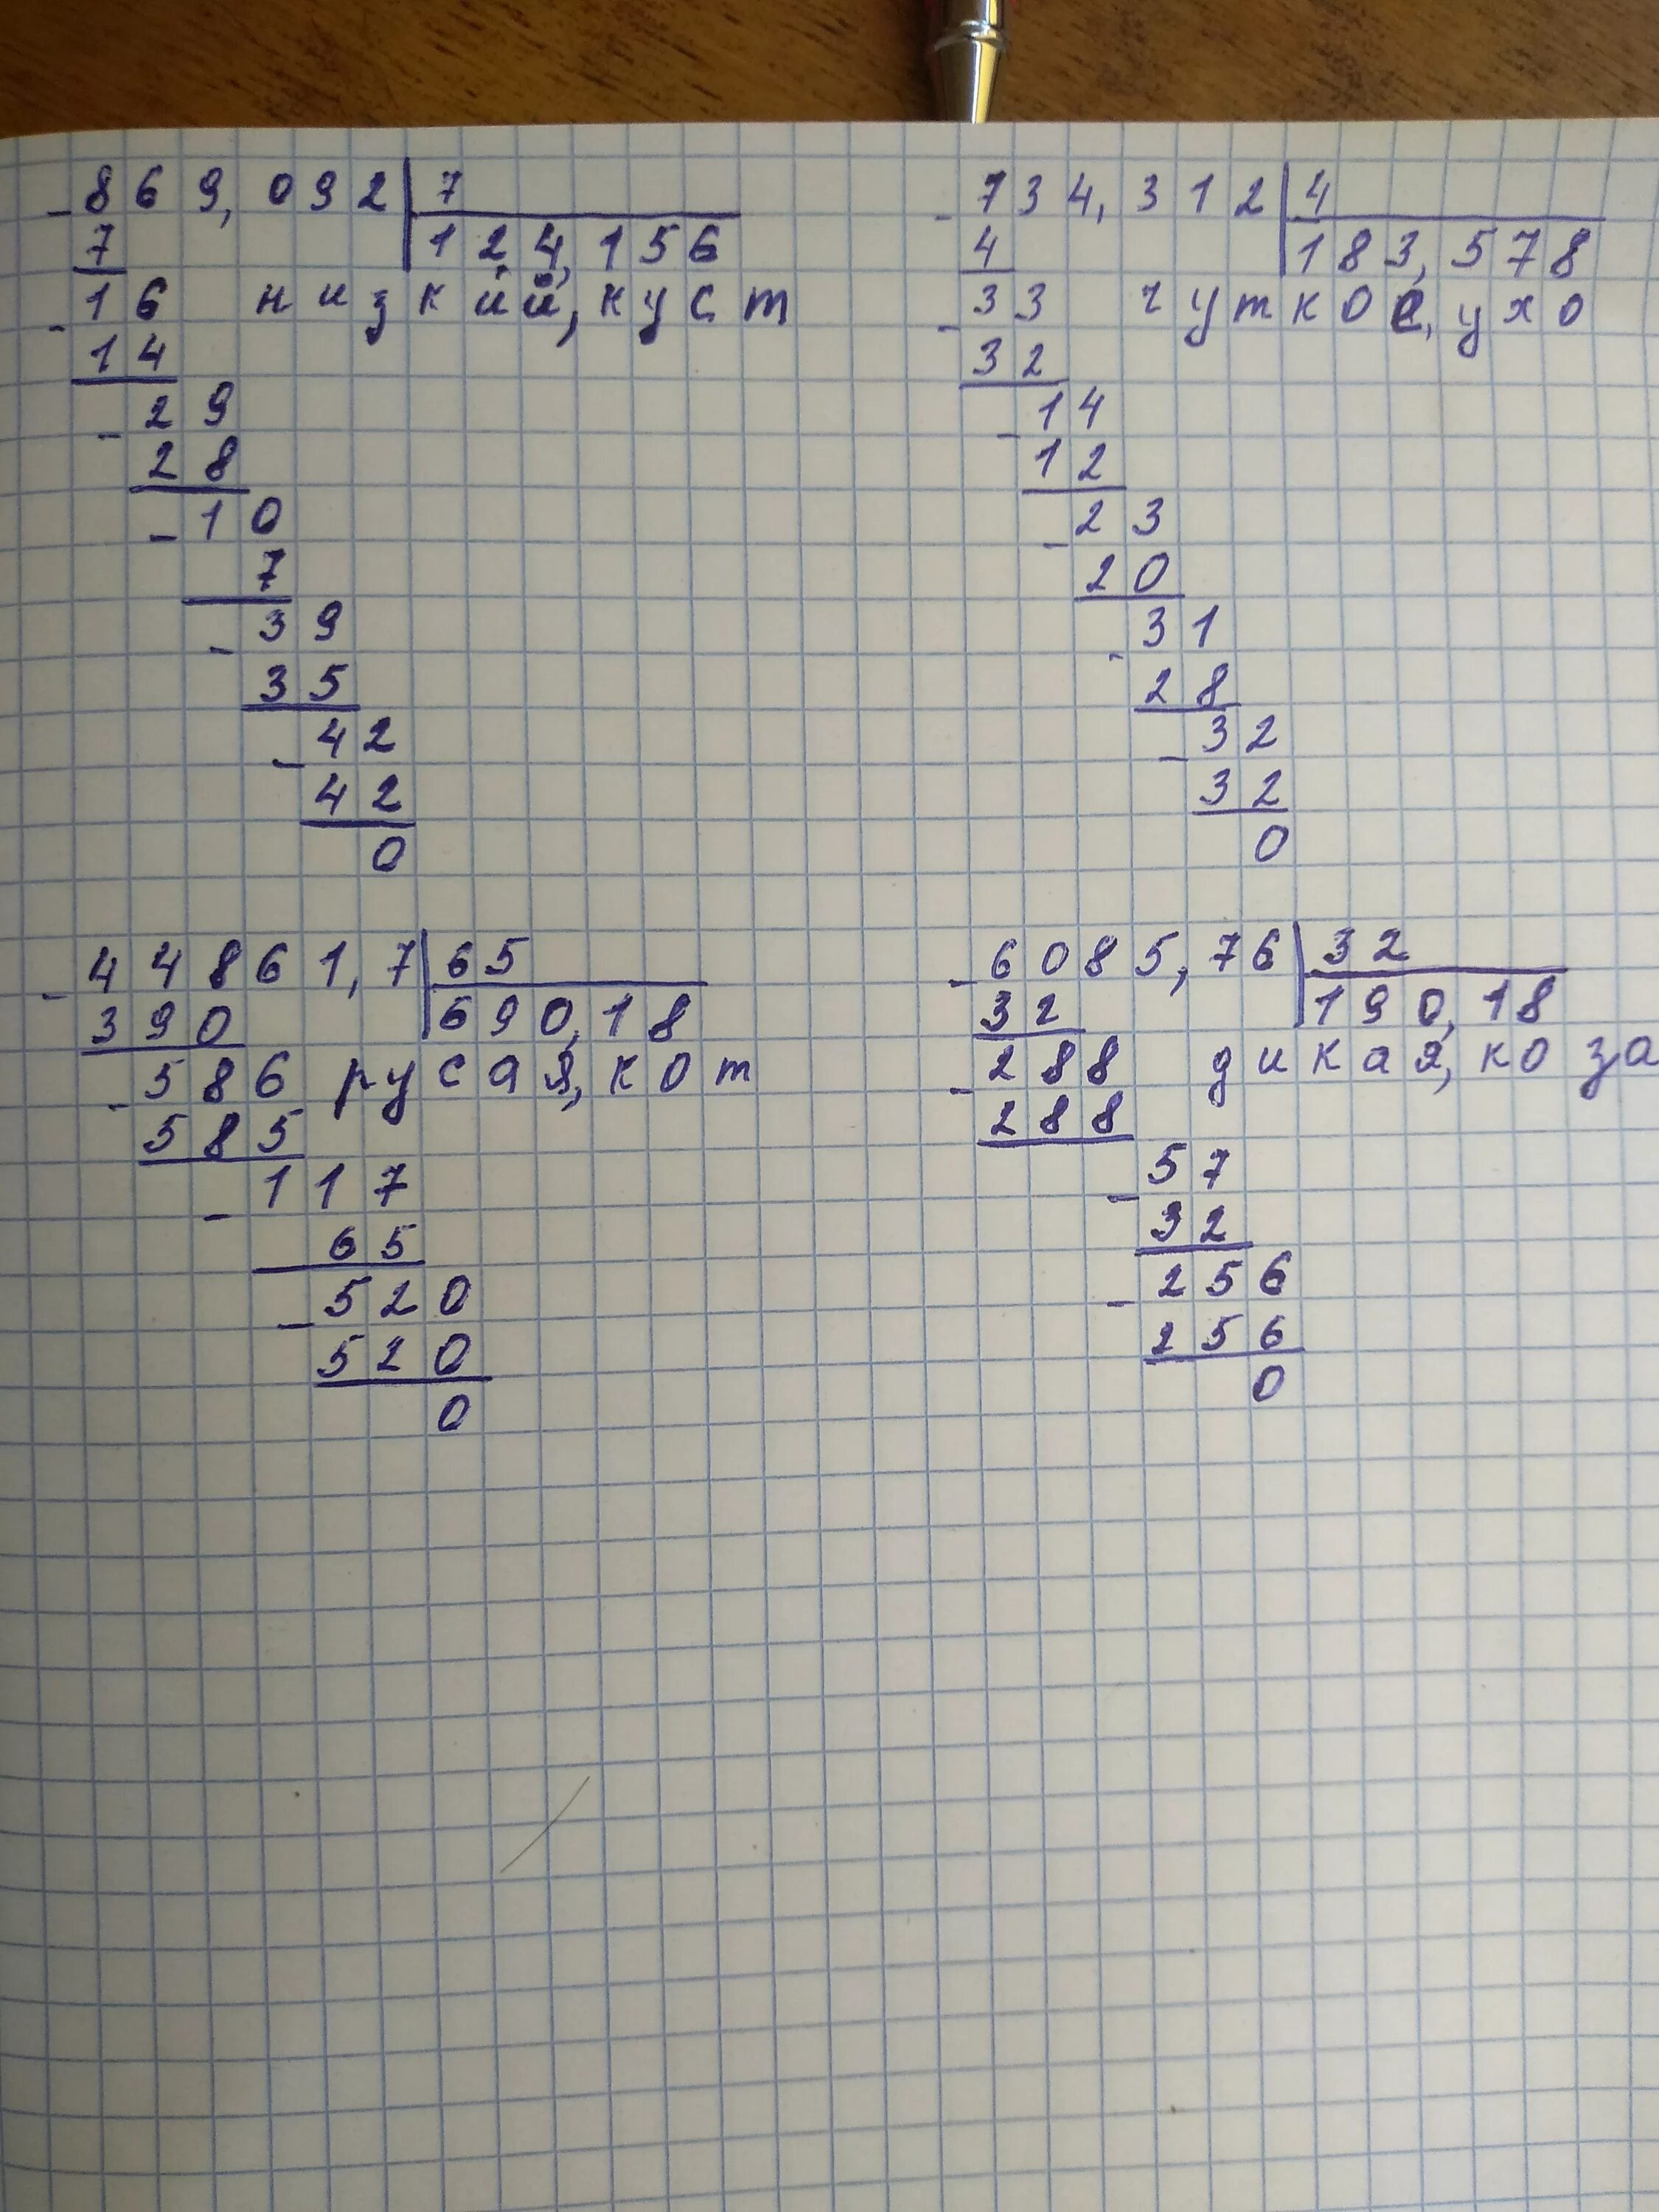 869,092 7
7 124,156
16 низкий, куст
14
29
28
10
7
39
35
42
42
0
734,312 4
4 183,578
33 чуткое, ухо
32
14
12
23
20
31
28
32
32
0
44861,7 65
390 690,18
586 русая, кот
585
117
65
520
520
0
6085,76 32
32 190,18
288 дикая, коза
288
57
32
256
256
0